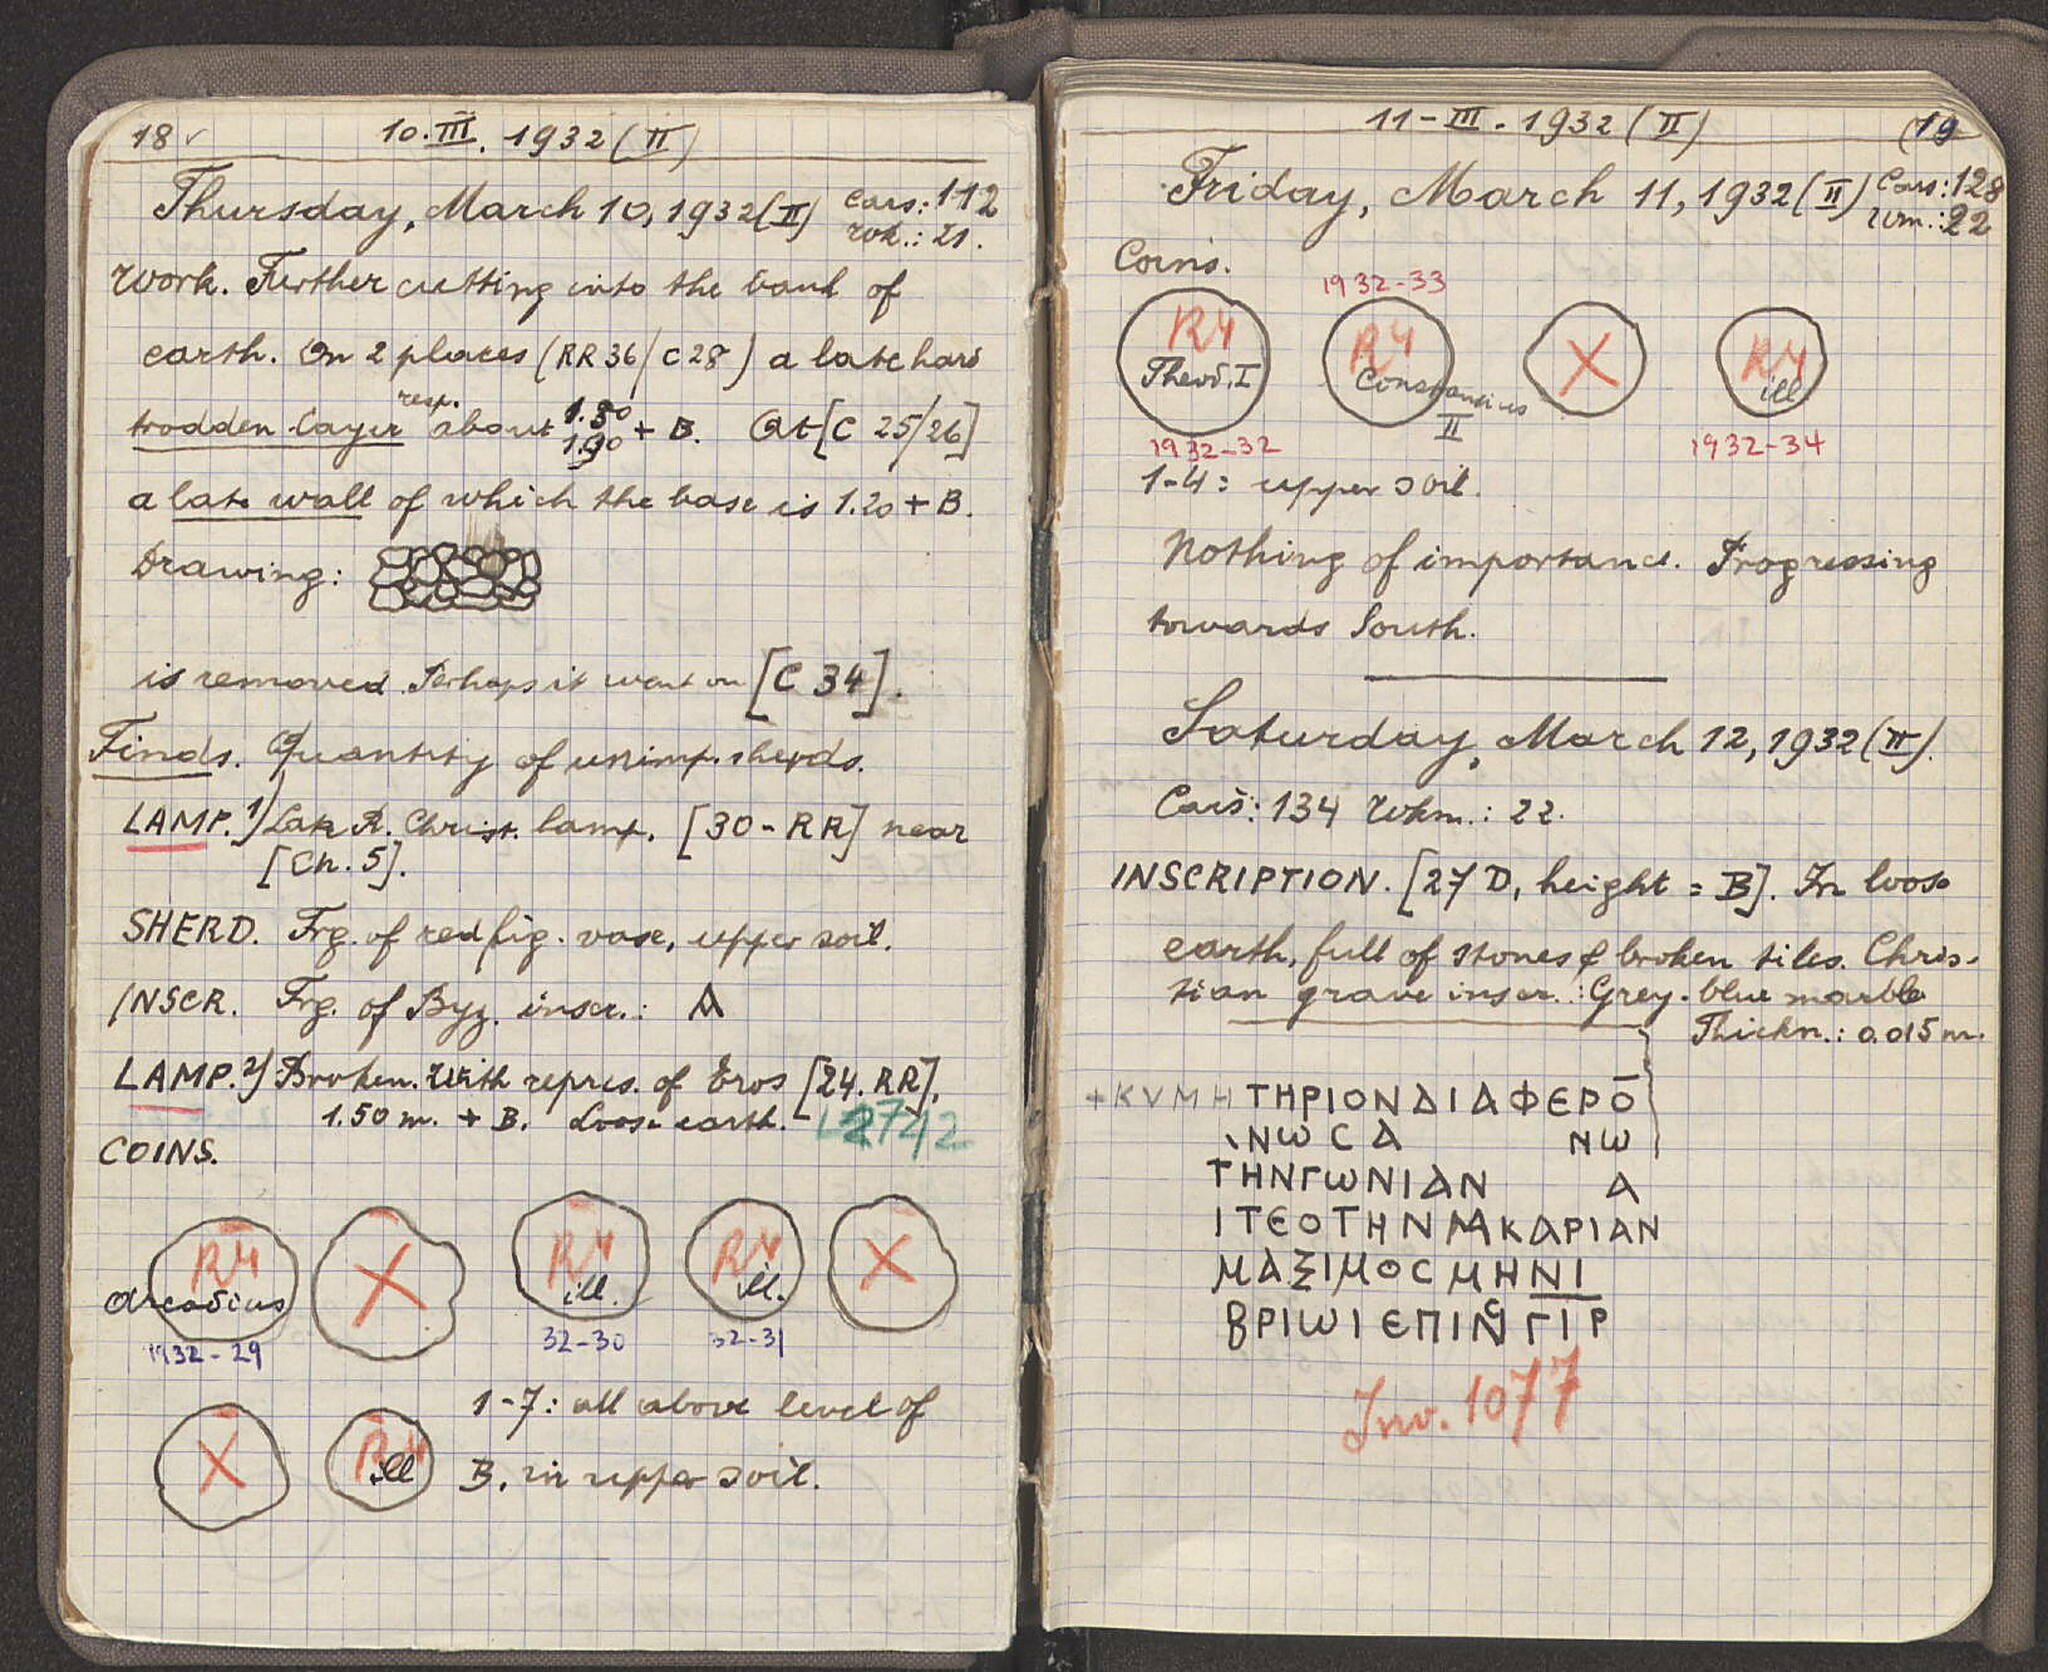 18 ✓ 10.III.1932 (II)
Thursday, March 10, 1932 (II) Cars: 112
Wok.: 21.
Work. Further cutting into the bank of
earth. On 2 places (RR 36/C 28) a late hard
trodden layer resp. about 1.30 + B. At [C 25/26]
1.90
a late wall of which the base is 1.20 + B.
Drawing:
is removed. Perhaps it went on [C 34].
Finds. Quantity of unimp. sherds.
LAMP. 1) Late R. Christ. lamp. [30-RR] near
[Ch. 5].
SHERD. Frg. of red fig. vase, upper soil.
INSCR. Frg. of Byz. inscr.: A
LAMP. 2) Broken. With repres. of Eros [24.RR],
1.50 m. + B. Loose earth. L 2742
COINS.
R4 X R4 R4 X
Arcadius ill. ill.
1932-29 32-30 32-31
X R4 ill
1-7: all above level of
B, in upper soil.
11-III-1932 (II) 19
Friday, March 11, 1932 (II) Cars: 128
Wm.: 22
Coins.
1932-33
R4 R4 X R4
Theod. I Constantius II ill
1932-32 1932-34
1-4: upper soil.
Nothing of importance. Progressing
towards South.
Saturday, March 12, 1932 (II).
Cars: 134 Wkm.: 22.
INSCRIPTION. [27 D, height = B]. In loose
earth, full of stones & broken tiles. Chris-
tian grave inscr.: Grey-blue marble
Thickn.: 0.015 m.
+ΚVΜΗΤΗΡΙΟΝΔΙΑΦΕΡΟ̄
ΙΝωϹΑ Νω
ΤΗΝΓωΝΙΑΝ Α
ΙΤΕΟΤΗΝΜΑΚΑΡΙΑΝ
ΜΑΞΙΜΟϹΜΗΝΙ
ΒΡΙωΙΕΠΙΝϹΓΙΡ
Inv. 1077